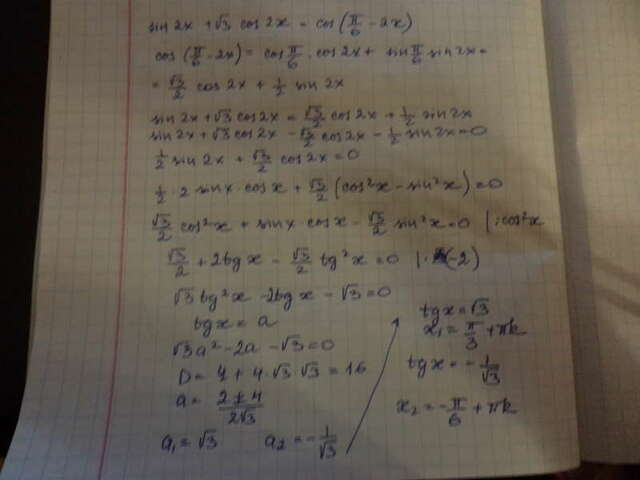 sin 2x + √3 cos 2x = cos(π/6 - 2x)
cos(π/6 - 2x) = cos π/6 · cos 2x + sin π/6 sin 2x =
= √3/2 cos 2x + 1/2 sin 2x
sin 2x + √3 cos 2x = √3/2 cos 2x + 1/2 sin 2x
sin 2x + √3 cos 2x - √3/2 cos 2x - 1/2 sin 2x = 0
1/2 sin 2x + √3/2 cos 2x = 0
1/2 · 2 sin x · cos x + √3/2 (cos²x - sin²x) = 0
√3/2 cos²x + sin x · cos x - √3/2 sin²x = 0 | : cos²x
√3/2 + 2tg x - √3/2 tg²x = 0 | · (-2)
√3 tg²x - 2tg x - √3 = 0
tg x = a
√3a² - 2a - √3 = 0
D = 4 + 4·√3·√3 = 16
a = (2 ± 4)/(2√3)
a₁ = √3 a₂ = -1/√3
tg x = √3
x₁ = π/3 + πk
tg x = -1/√3
x₂ = -π/6 + πk